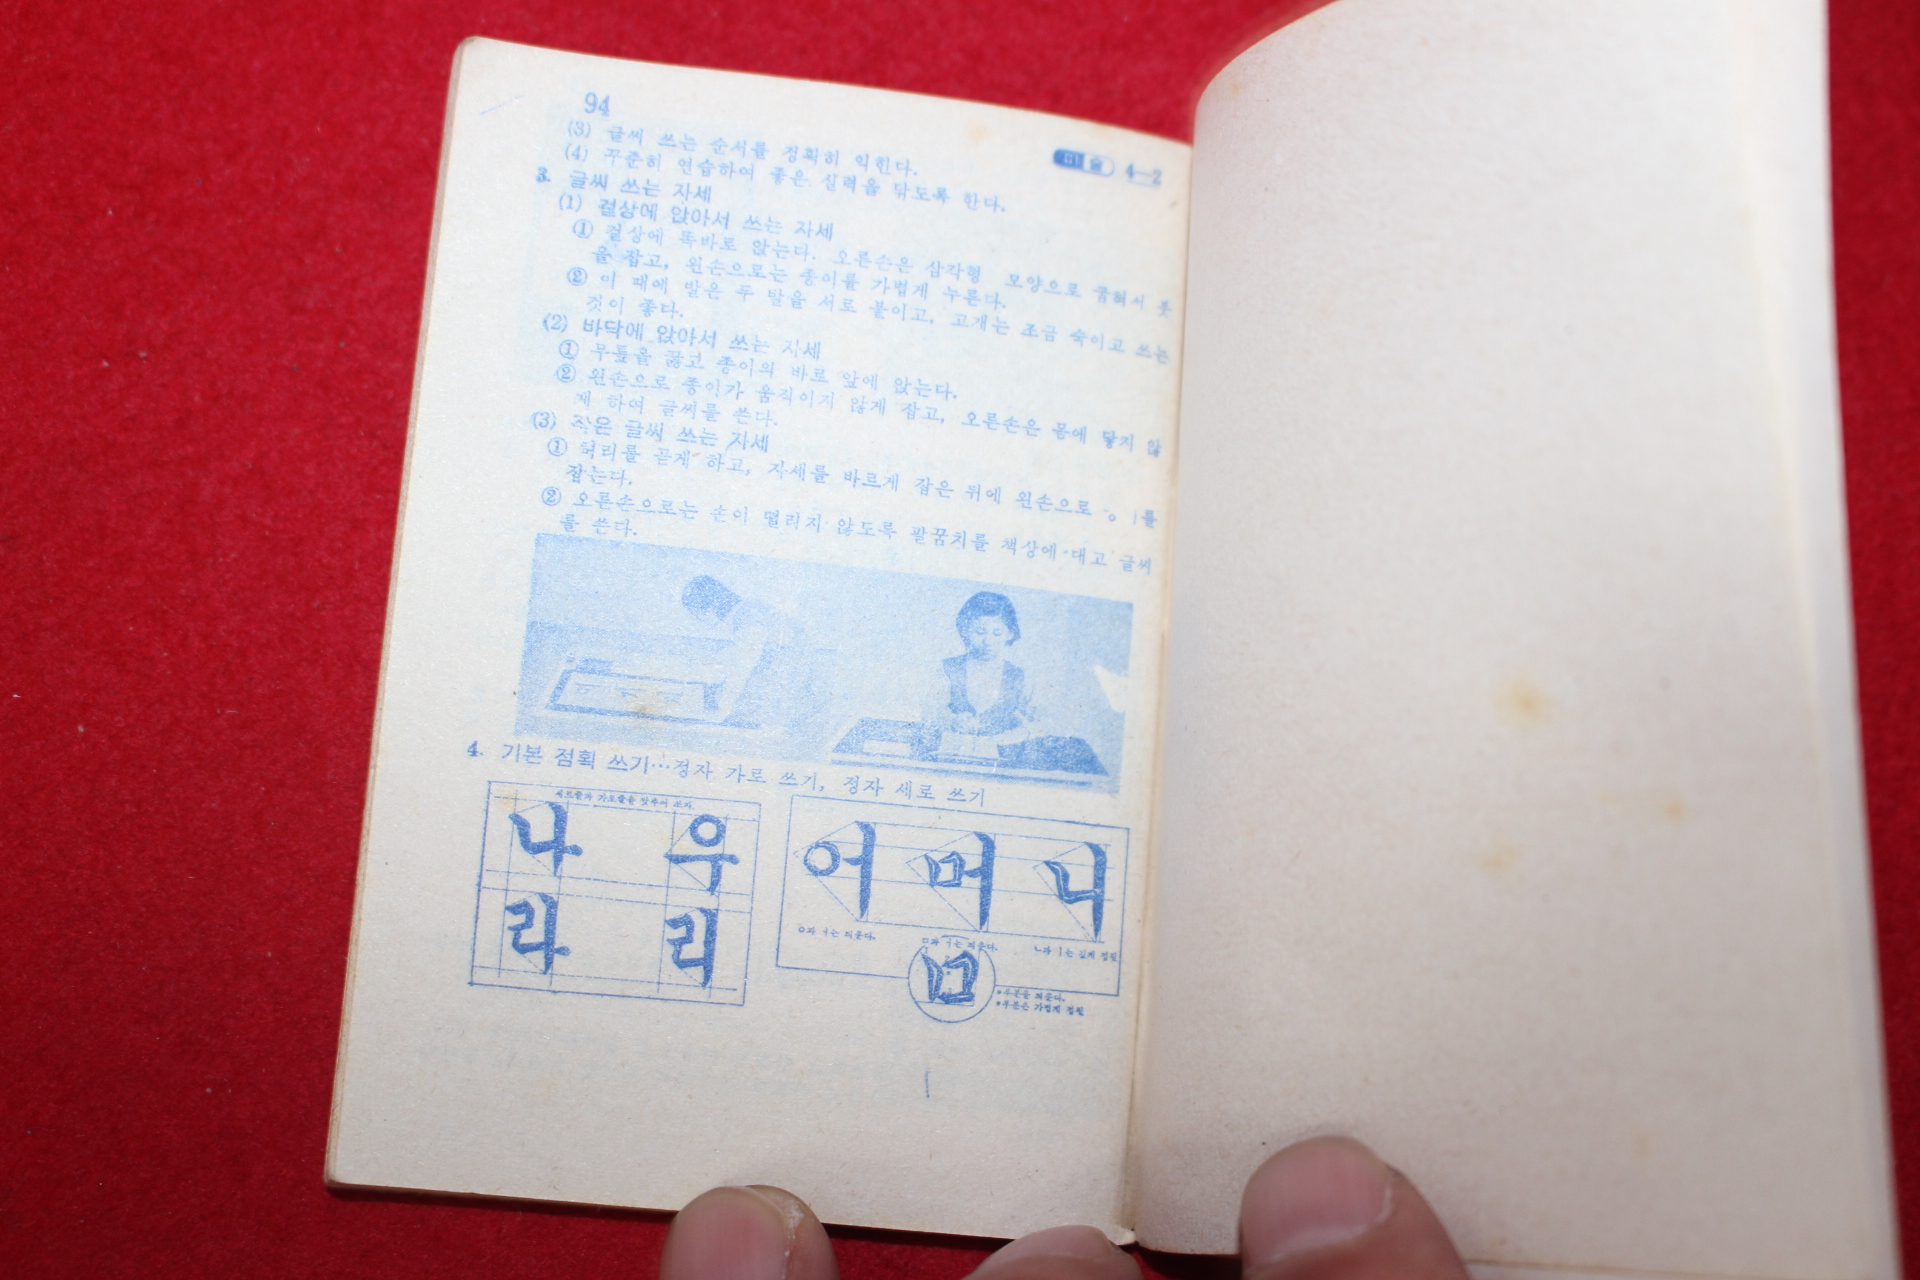 94
미술 4—2
(3) 글씨 쓰는 순서를 정확히 익힌다.
(4) 꾸준히 연습하여 좋은 실력을 닦도록 한다.
3. 글씨 쓰는 자세
(1) 걸상에 앉아서 쓰는 자세
① 걸상에 똑바로 앉는다. 오른손은 삼각형 모양으로 굽혀서 붓
을 잡고, 왼손으로는 종이를 가볍게 누른다.
② 이 때에 발은 두 발을 서로 붙이고, 고개는 조금 숙이고 쓰는
것이 좋다.
(2) 바닥에 앉아서 쓰는 자세
① 무릎을 꿇고 종이의 바로 앞에 앉는다.
② 왼손으로 종이가 움직이지 않게 잡고, 오른손은 몸에 닿지 않
게 하여 글씨를 쓴다.
(3) 작은 글씨 쓰는 자세
① 허리를 곧게 하고, 자세를 바르게 잡은 뒤에 왼손으로
잡는다.
② 오른손으로는 손이 떨리지 않도록 팔꿈치를 책상에 대고 글씨
를 쓴다.
4. 기본 점획 쓰기…정자 가로 쓰기, 정자 세로 쓰기
세로줄과 가로줄을 맞추어 쓰자.
나 우
라 리
어 머 니
ㅇ과 ㅓ는 띄운다.
ㅁ과 ㅓ는 띄운다.
ㄴ과 ㅣ는
ㅁ
부분을 띄운다.
부분은 가볍게